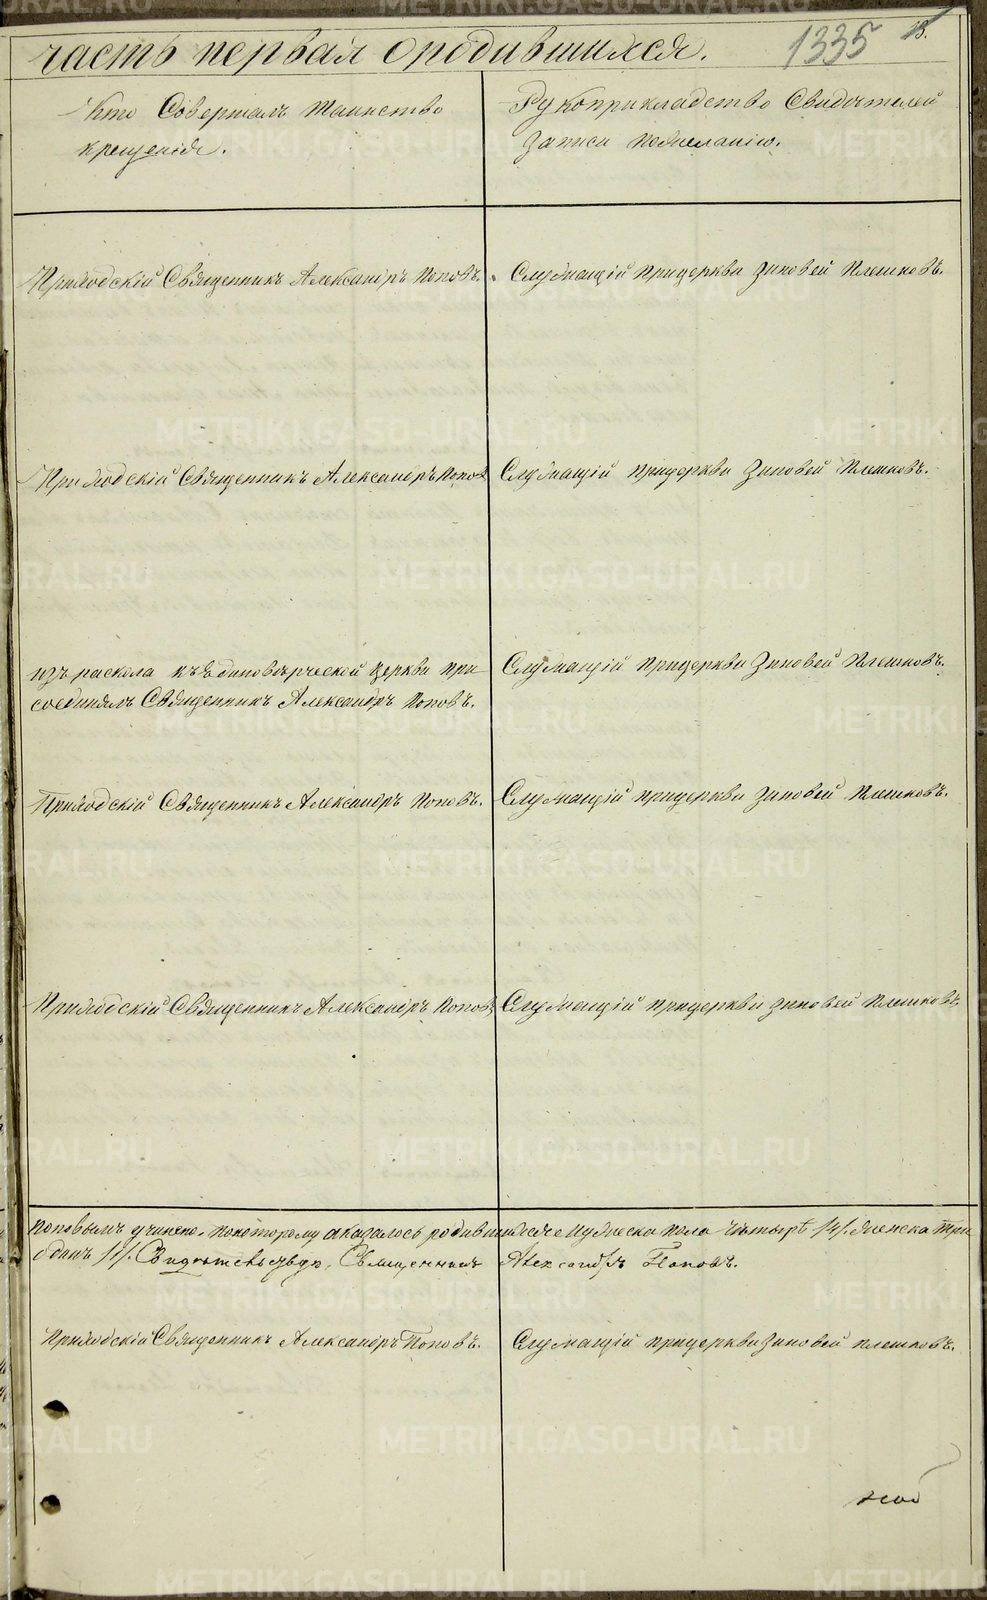 часть первая о родившихся. 1335 13.
Кто Совершалъ таинство
крещенія.
Рукоприкладство Свидѣтелей
записи пожеланію.
Приходскій Священникъ Александръ Поповъ.
Служащій прицеркви Зиновей Плешковъ.
Приходскій Священникъ Александръ Поповъ
Служащій прицеркви Зиновей Плешковъ.
изъ раскола къ Единовѣрческой церкви при-
соединялъ Священникъ Александръ Поповъ.
Служащій прицеркви Зиновей Плешковъ.
Приходскій Священникъ Александръ Поповъ.
Служащій прицеркви Зиновей Плешковъ.
Приходскій Священникъ Александръ Поповъ
Служащій прицеркви Зиновей Плешковъ.
Поповымъ учинено. Покоторому оказалось родившихся Мужеска пола четыре /4/. женска
/1/. Свидѣтельствую, Священникъ Александръ Поповъ.
Приходскій Священникъ Александръ Поповъ.
Служащій прицеркви Зиновей Плешковъ.
METRIKI.GASO-URAL.RU